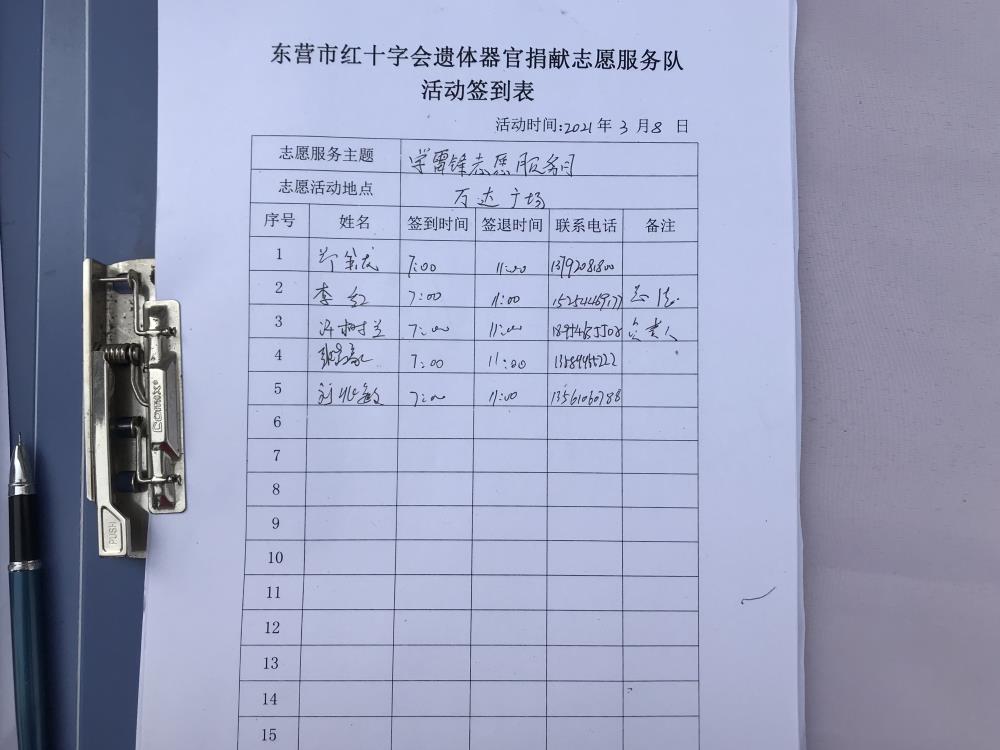 东营市红十字会遗体器官捐献志愿服务队
活动签到表
活动时间:2021年3月8日
志愿服务主题 学雷锋志愿服务月
志愿活动地点 万达广场
序号 姓名 签到时间 签退时间 联系电话 备注
1 7:00 11:00
2 李红 7:00 11:00
3 许树兰 7:00 11:00 负责人
4 7:00 11:00
5 刘兆敏 7:00 11:00 13561060788
6
7
8
9
10
11
12
13
14
15
Comix
PUSH